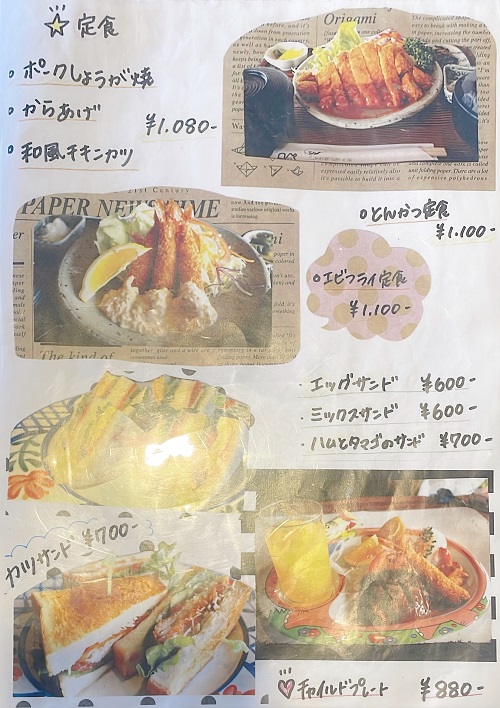 定食
ポークしょうが焼
からあげ
¥1.080-
和風チキンカツ
Origami
とんかつ定食
¥1.100-
21st Century
PAPER NEWS TIME
エビフライ定食
¥1.100-
The kind of
エッグサンド ¥600-
ミックスサンド ¥600-
ハムとタマゴのサンド ¥700-
カツサンド ¥700-
チャイルドプレート ¥880-